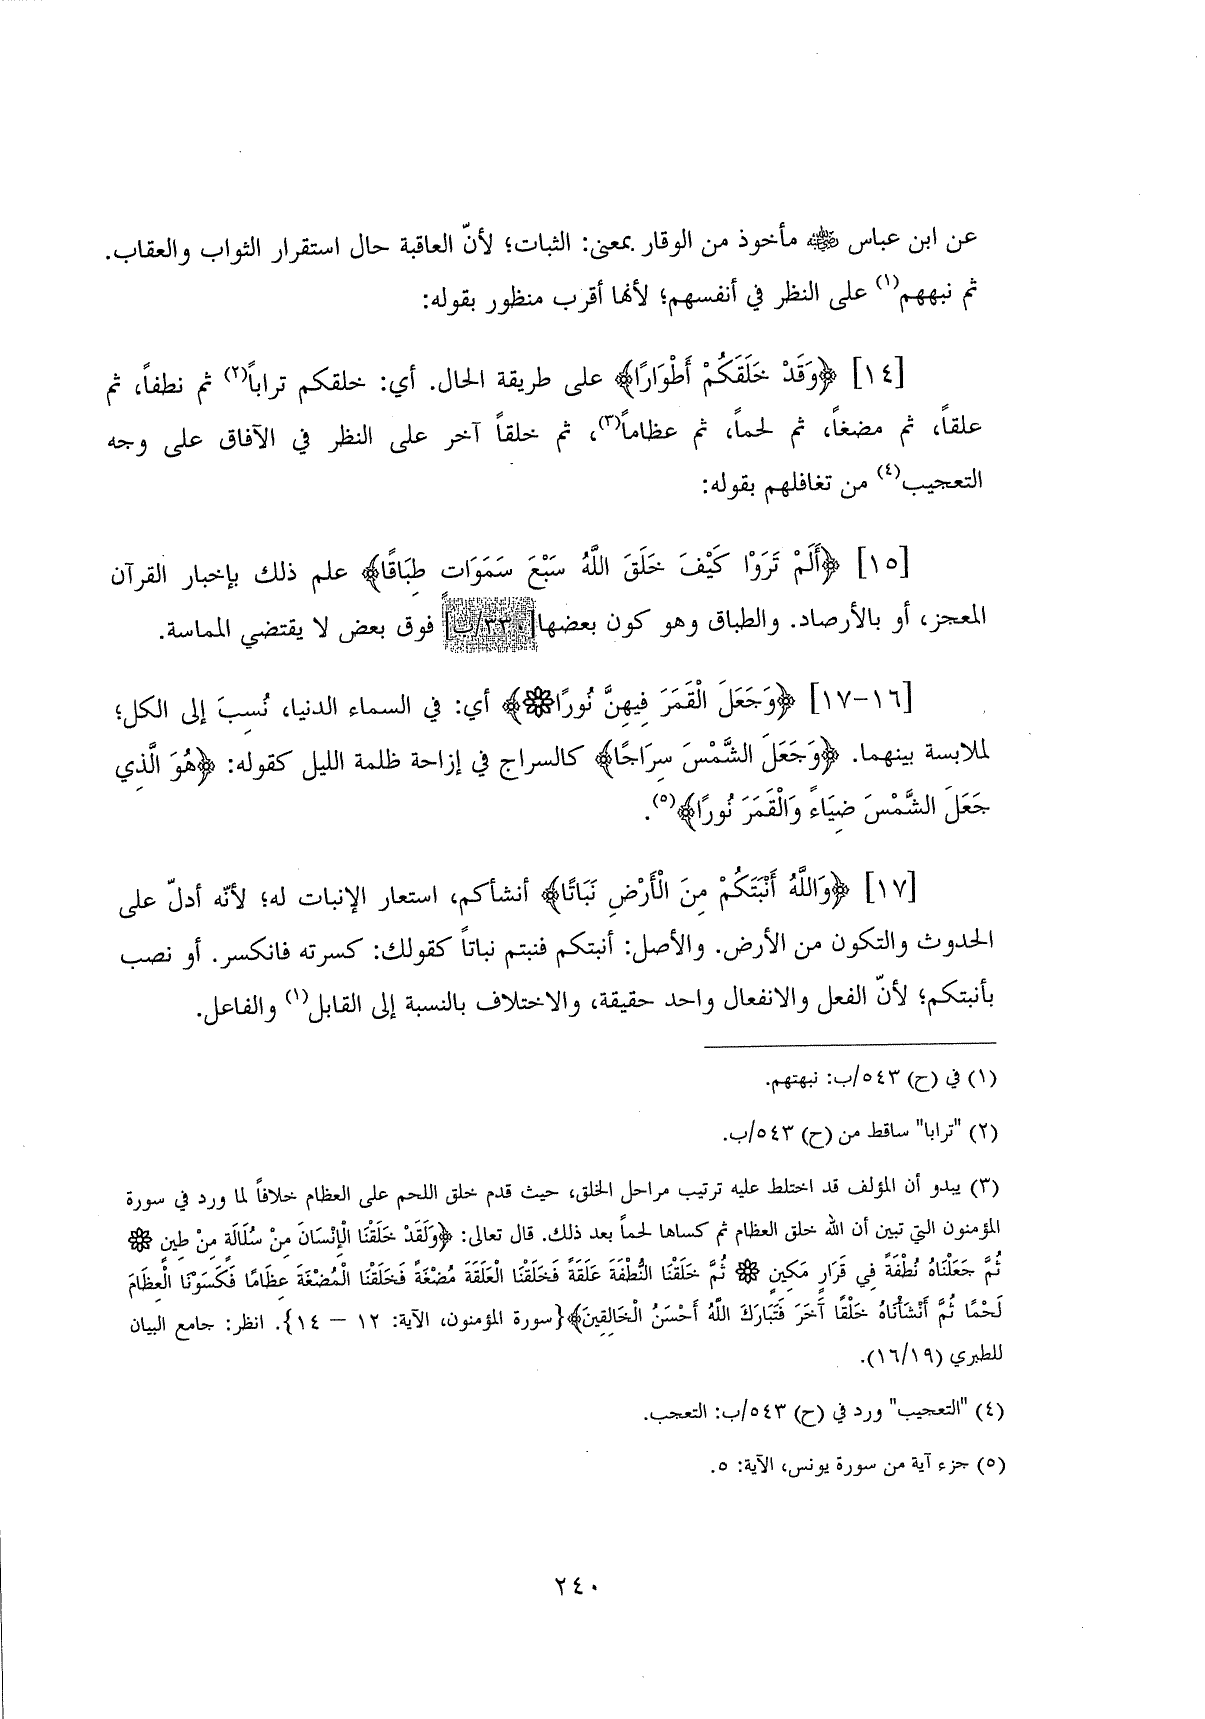 عن ابن عباس ﷺ مأخوذ من الوقار بمعنى: الثبات؛ لأنّ العاقبة حال استقرار الثواب والعقاب.
ثم نبههم(١) على النظر في أنفسهم؛ لأنها أقرب منظور بقوله:
[١٤] ﴿وَقَدْ خَلَقَكُمْ أَطْوَارًا﴾ على طريقة الحال. أي: خلقكم تراباً(٢) ثم نطفاً، ثم
علقاً، ثم مضغاً، ثم لحماً، ثم عظاماً(٣)، ثم خلقاً آخر على النظر في الآفاق على وجه
التعجيب(٤) من تغافلهم بقوله:
[١٥] ﴿أَلَمْ تَرَوْا كَيْفَ خَلَقَ اللَّهُ سَبْعَ سَمَوَاتٍ طِبَاقًا﴾ علم ذلك بإخبار القرآن
المعجز، أو بالأرصاد. والطباق وهو كون بعضها[٣٣٠/ب] فوق بعض لا يقتضي المماسة.
[١٦-١٧] ﴿وَجَعَلَ الْقَمَرَ فِيهِنَّ نُورًا۝﴾ أي: في السماء الدنيا، نُسِبَ إلى الكل؛
لملابسة بينهما. ﴿وَجَعَلَ الشَّمْسَ سِرَاجًا﴾ كالسراج في إزاحة ظلمة الليل كقوله: ﴿هُوَ الَّذِي
جَعَلَ الشَّمْسَ ضِيَاءً وَالْقَمَرَ نُورًا﴾(٥).
[١٧] ﴿وَاللَّهُ أَنْبَتَكُمْ مِنَ الْأَرْضِ نَبَاتًا﴾ أنشأكم، استعار الإنبات له؛ لأنّه أدلّ على
الحدوث والتكون من الأرض. والأصل: أنبتكم فنبتم نباتاً كقولك: كسرته فانكسر. أو نصب
بأنبتكم؛ لأنّ الفعل والانفعال واحد حقيقة، والاختلاف بالنسبة إلى القابل(١) والفاعل.
(١) في (ح) ٥٤٣/ب: نبهتهم.
(٢) "ترابا" ساقط من (ح) ٥٤٣/ب.
(٣) يبدو أن المؤلف قد اختلط عليه ترتيب مراحل الخلق، حيث قدم خلق اللحم على العظام خلافاً لما ورد في سورة
المؤمنون التي تبين أن الله خلق العظام ثم كساها لحماً بعد ذلك. قال تعالى: ﴿وَلَقَدْ خَلَقْنَا الْإِنْسَانَ مِنْ سُلَالَةٍ مِنْ طِينٍ ۝
ثُمَّ جَعَلْنَاهُ نُطْفَةً فِي قَرَارٍ مَكِينٍ ۝ ثُمَّ خَلَقْنَا النُّطْفَةَ عَلَقَةً فَخَلَقْنَا الْعَلَقَةَ مُضْغَةً فَخَلَقْنَا الْمُضْغَةَ عِظَامًا فَكَسَوْنَا الْعِظَامَ
لَحْمًا ثُمَّ أَنْشَأْنَاهُ خَلْقًا آخَرَ فَتَبَارَكَ اللَّهُ أَحْسَنُ الْخَالِقِينَ﴾{سورة المؤمنون، الآية: ١٢ – ١٤}. انظر: جامع البيان
للطبري (١٦/١٩).
(٤) "التعجيب" ورد في (ح) ٥٤٣/ب: التعجب.
(٥) جزء آية من سورة يونس، الآية: ٥.
٢٤٠